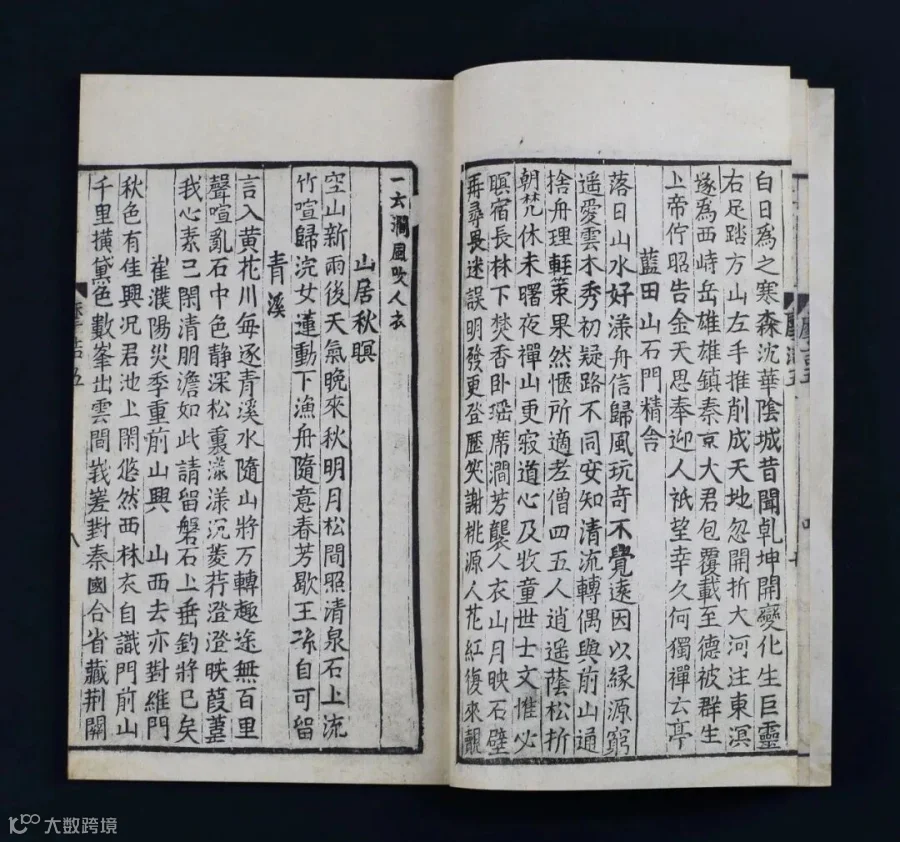 白日爲之寒森沈華陰城昔聞乹坤開變化生巨靈
右足踏方山左手推削成天地忽開折大河注東溟
遂爲西峙岳雄雄鎮秦京大君包覆載至德被群生
上帝佇昭告金天思奉迎人祇望幸久何獨禪云亭
藍田山石門精舎
落日山水好漾舟信歸風玩奇不覺遠因以緣源窮
遥愛雲木秀初疑路不同安知清流轉偶與前山通
捨舟理輕策果然愜所適老僧四五人逍遥蔭松折
朝梵休未曙夜禪山更寂道心及牧童世士文惟必
暝宿長林下焚香卧瑶席澗芳襲人衣山月映石壁
再尋畏迷誤明發更登歷笑謝桃源人花紅復來覿
一云澗風吹人衣
山居秋暝
空山新雨後天氣晚來秋明月松間照清泉石上流
竹喧歸浣女蓮動下漁舟隨意春芳歇王孫自可留
青溪
言入黄花川每逐青溪水隨山將万轉趣途無百里
聲喧亂石中色静深松裏漾漾汎菱荇澄澄映葭葦
我心素已閑清朋澹如此請留磐石上垂釣將已矣
崔濮陽兄季重前山興 山西去亦對維門
秋色有佳興况君池上閑悠然西林衣自識門前山
千里横黛色數峯出雲間嵯峩對秦國合省藏荆關
八
大数跨境